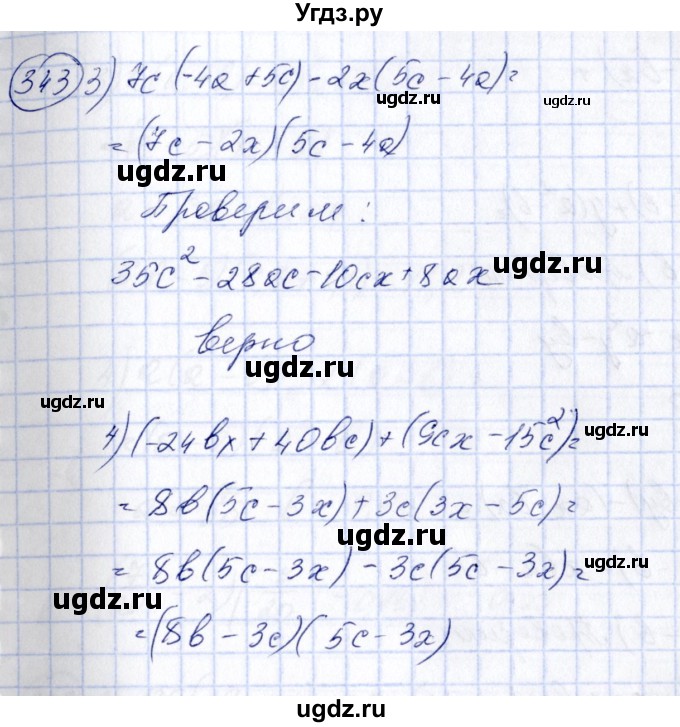 Угдз.ру
343 3) 7c(-4a+5c)-2x(5c-4a)=
=(7c-2x)(5c-4a)
ugdz.ru
ugdz.ru
ugdz.ru
Проверим:
35c²-28ac-10cx+8ax
ugdz.ru
верно
ugdz.ru
ugdz.ru
4) (-24bx+40bc)+(9cx-15c²)=
ugdz.ru
=8b(5c-3x)+3c(3x-5c)=
ugdz.ru
=8b(5c-3x)-3c(5c-3x)=
ugdz.ru
=(8b-3c)(5c-3x)
ugdz.ru
ugdz.ru